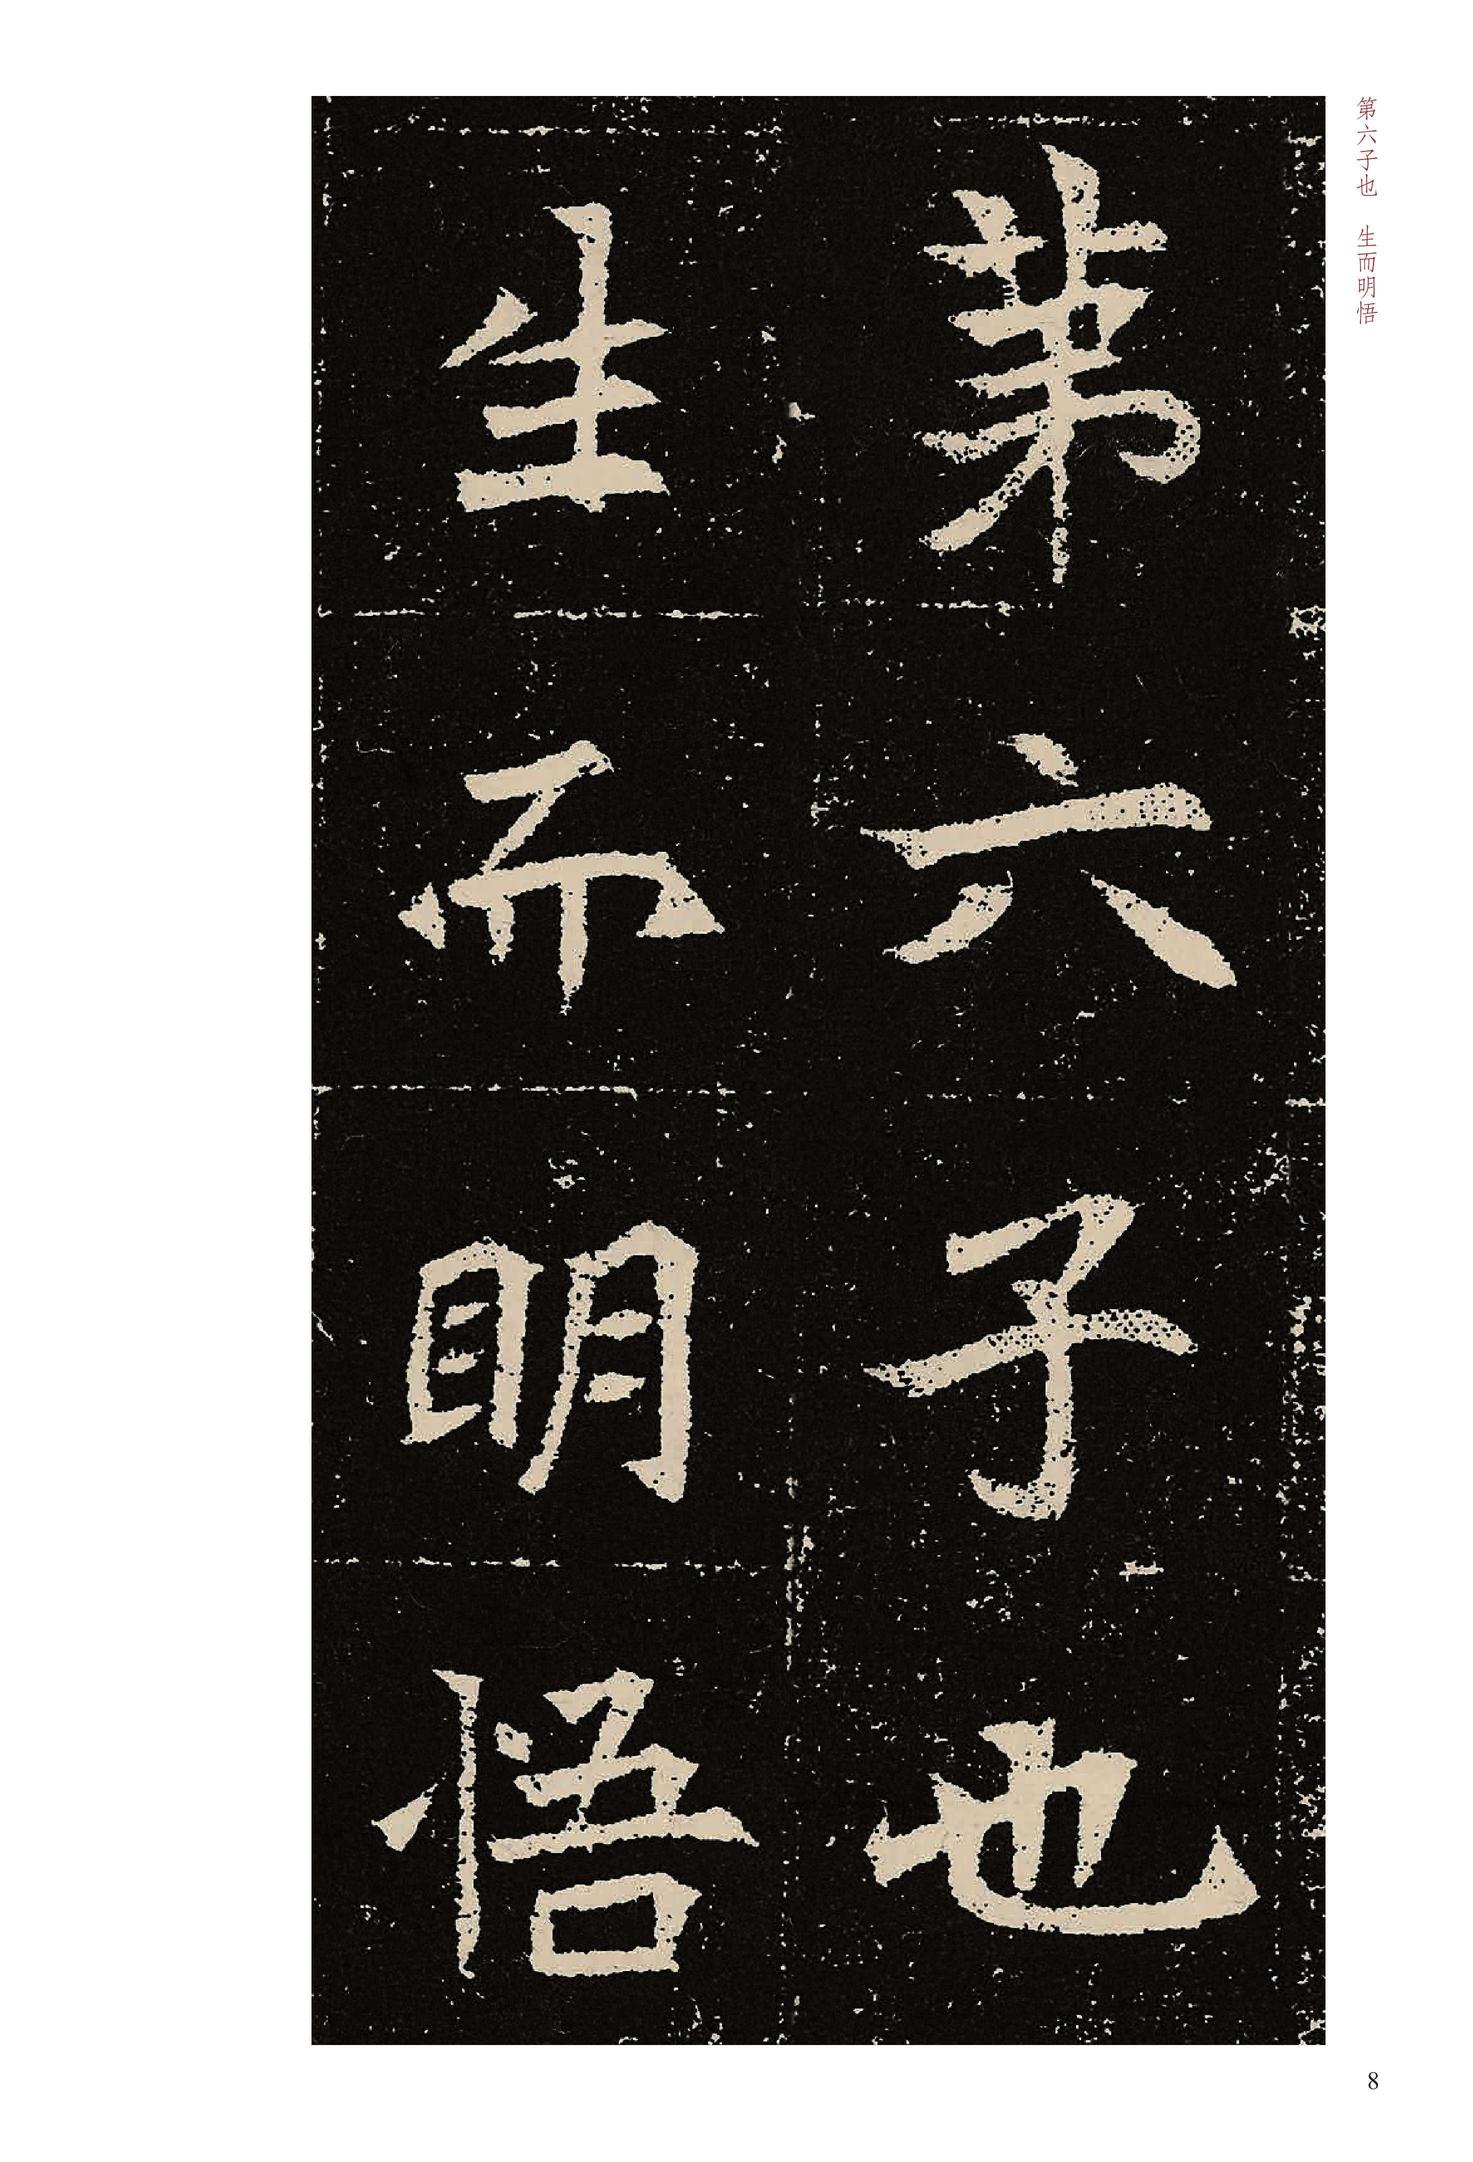 第六子也　生而明悟
第六子也
生而明悟
8